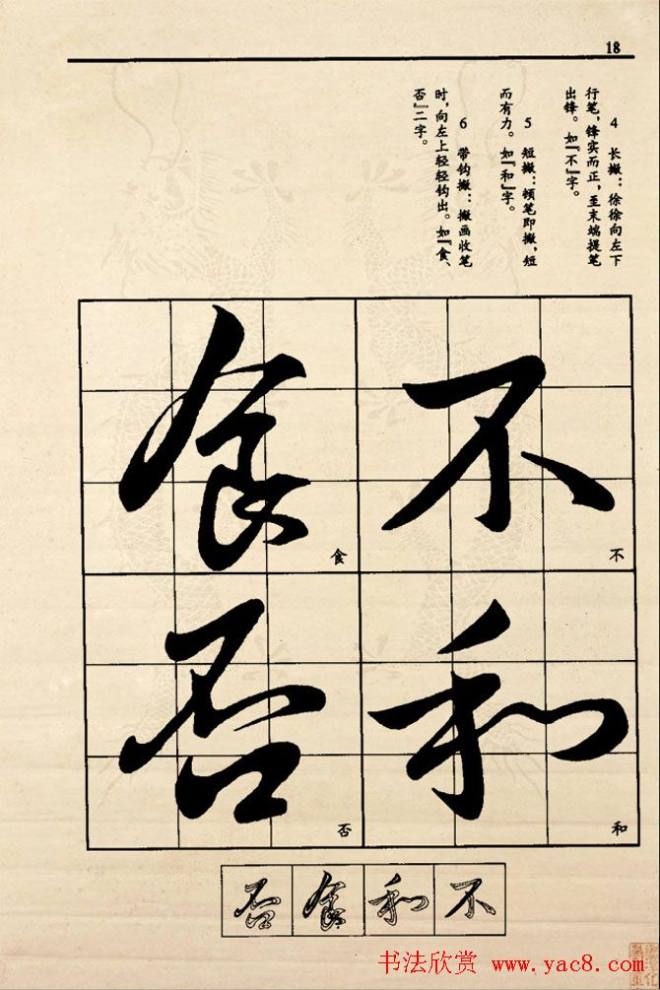 18
4 长撇：徐徐向左下
行笔，锋实而正，至末端提笔
出锋。如『不』字。
5 短撇：顿笔即撇，短
而有力。如『和』字。
6 带钩撇：撇画收笔
时，向左上轻轻钩出。如『食、
否』二字。
不
不
和
和
食
食
否
否
不
和
食
否
书法欣赏 www.yac8.com